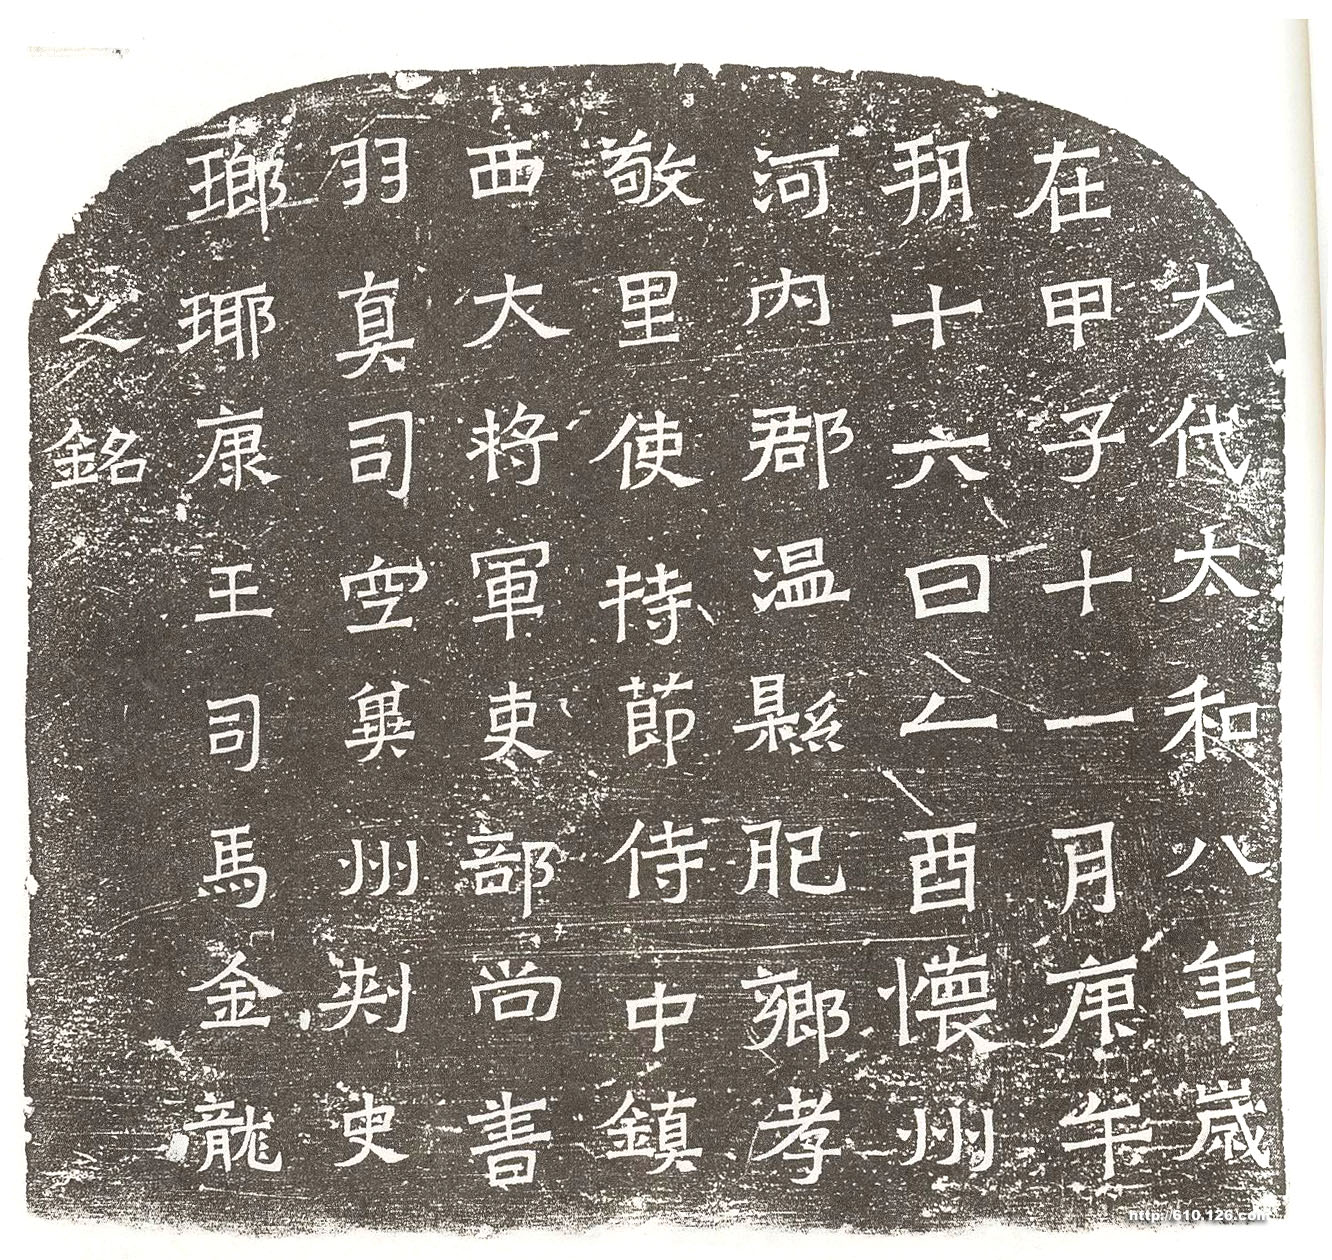 大代太和八年歲
在甲子十一月庚午
朔十六日乙酉懷州
河內郡溫縣肥鄉孝
敬里使持節侍中鎮
西大將軍吏部尚書
羽真司空冀州刺史
瑯琊康王司馬金龍
之銘
http://610.126.com